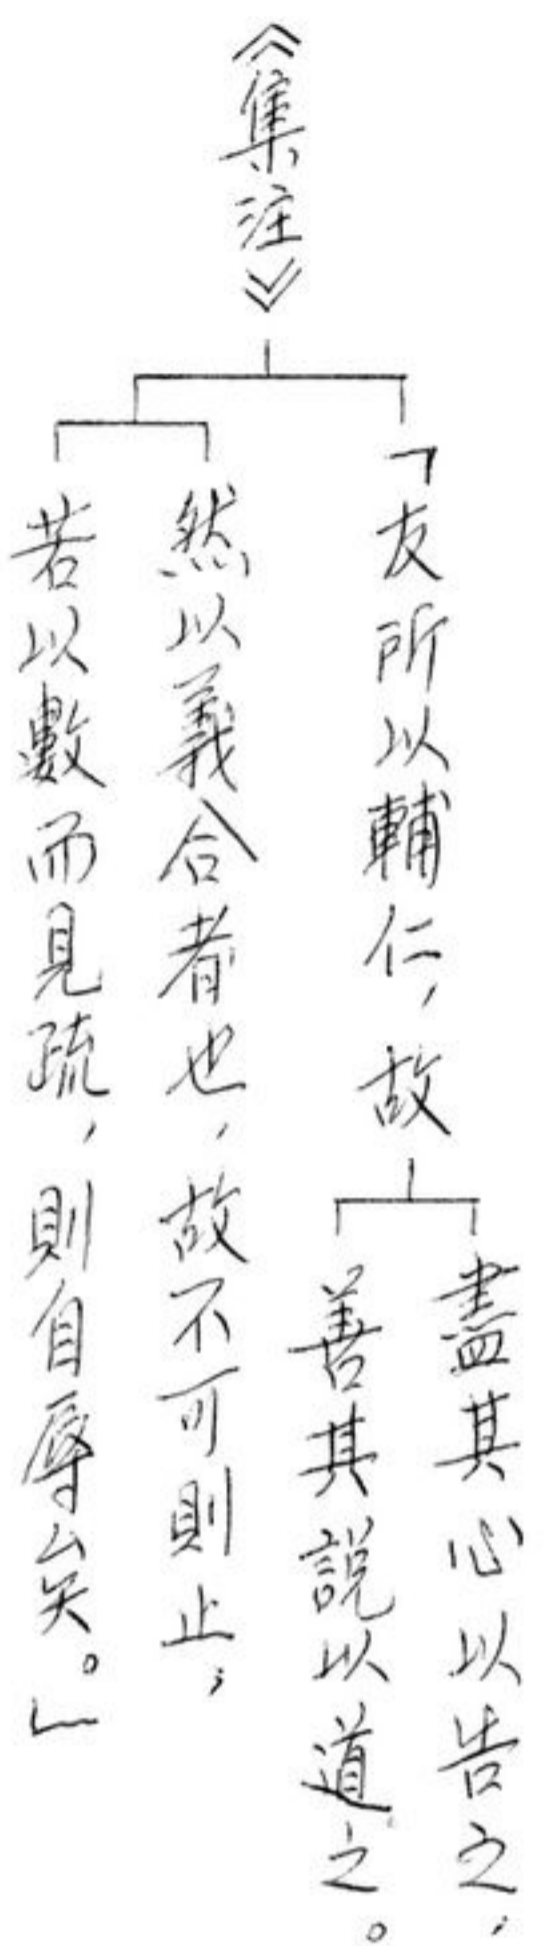 《集注》
「友所以輔仁，故
盡其心以告之，
善其說以道之。
然以義合者也，故不可則止；
若以數而見疏，則自辱矣。」